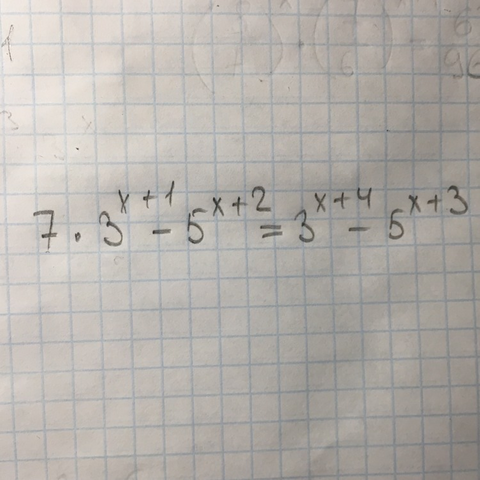 7 · 3^{x+1} - 5^{x+2} = 3^{x+4} - 5^{x+3}